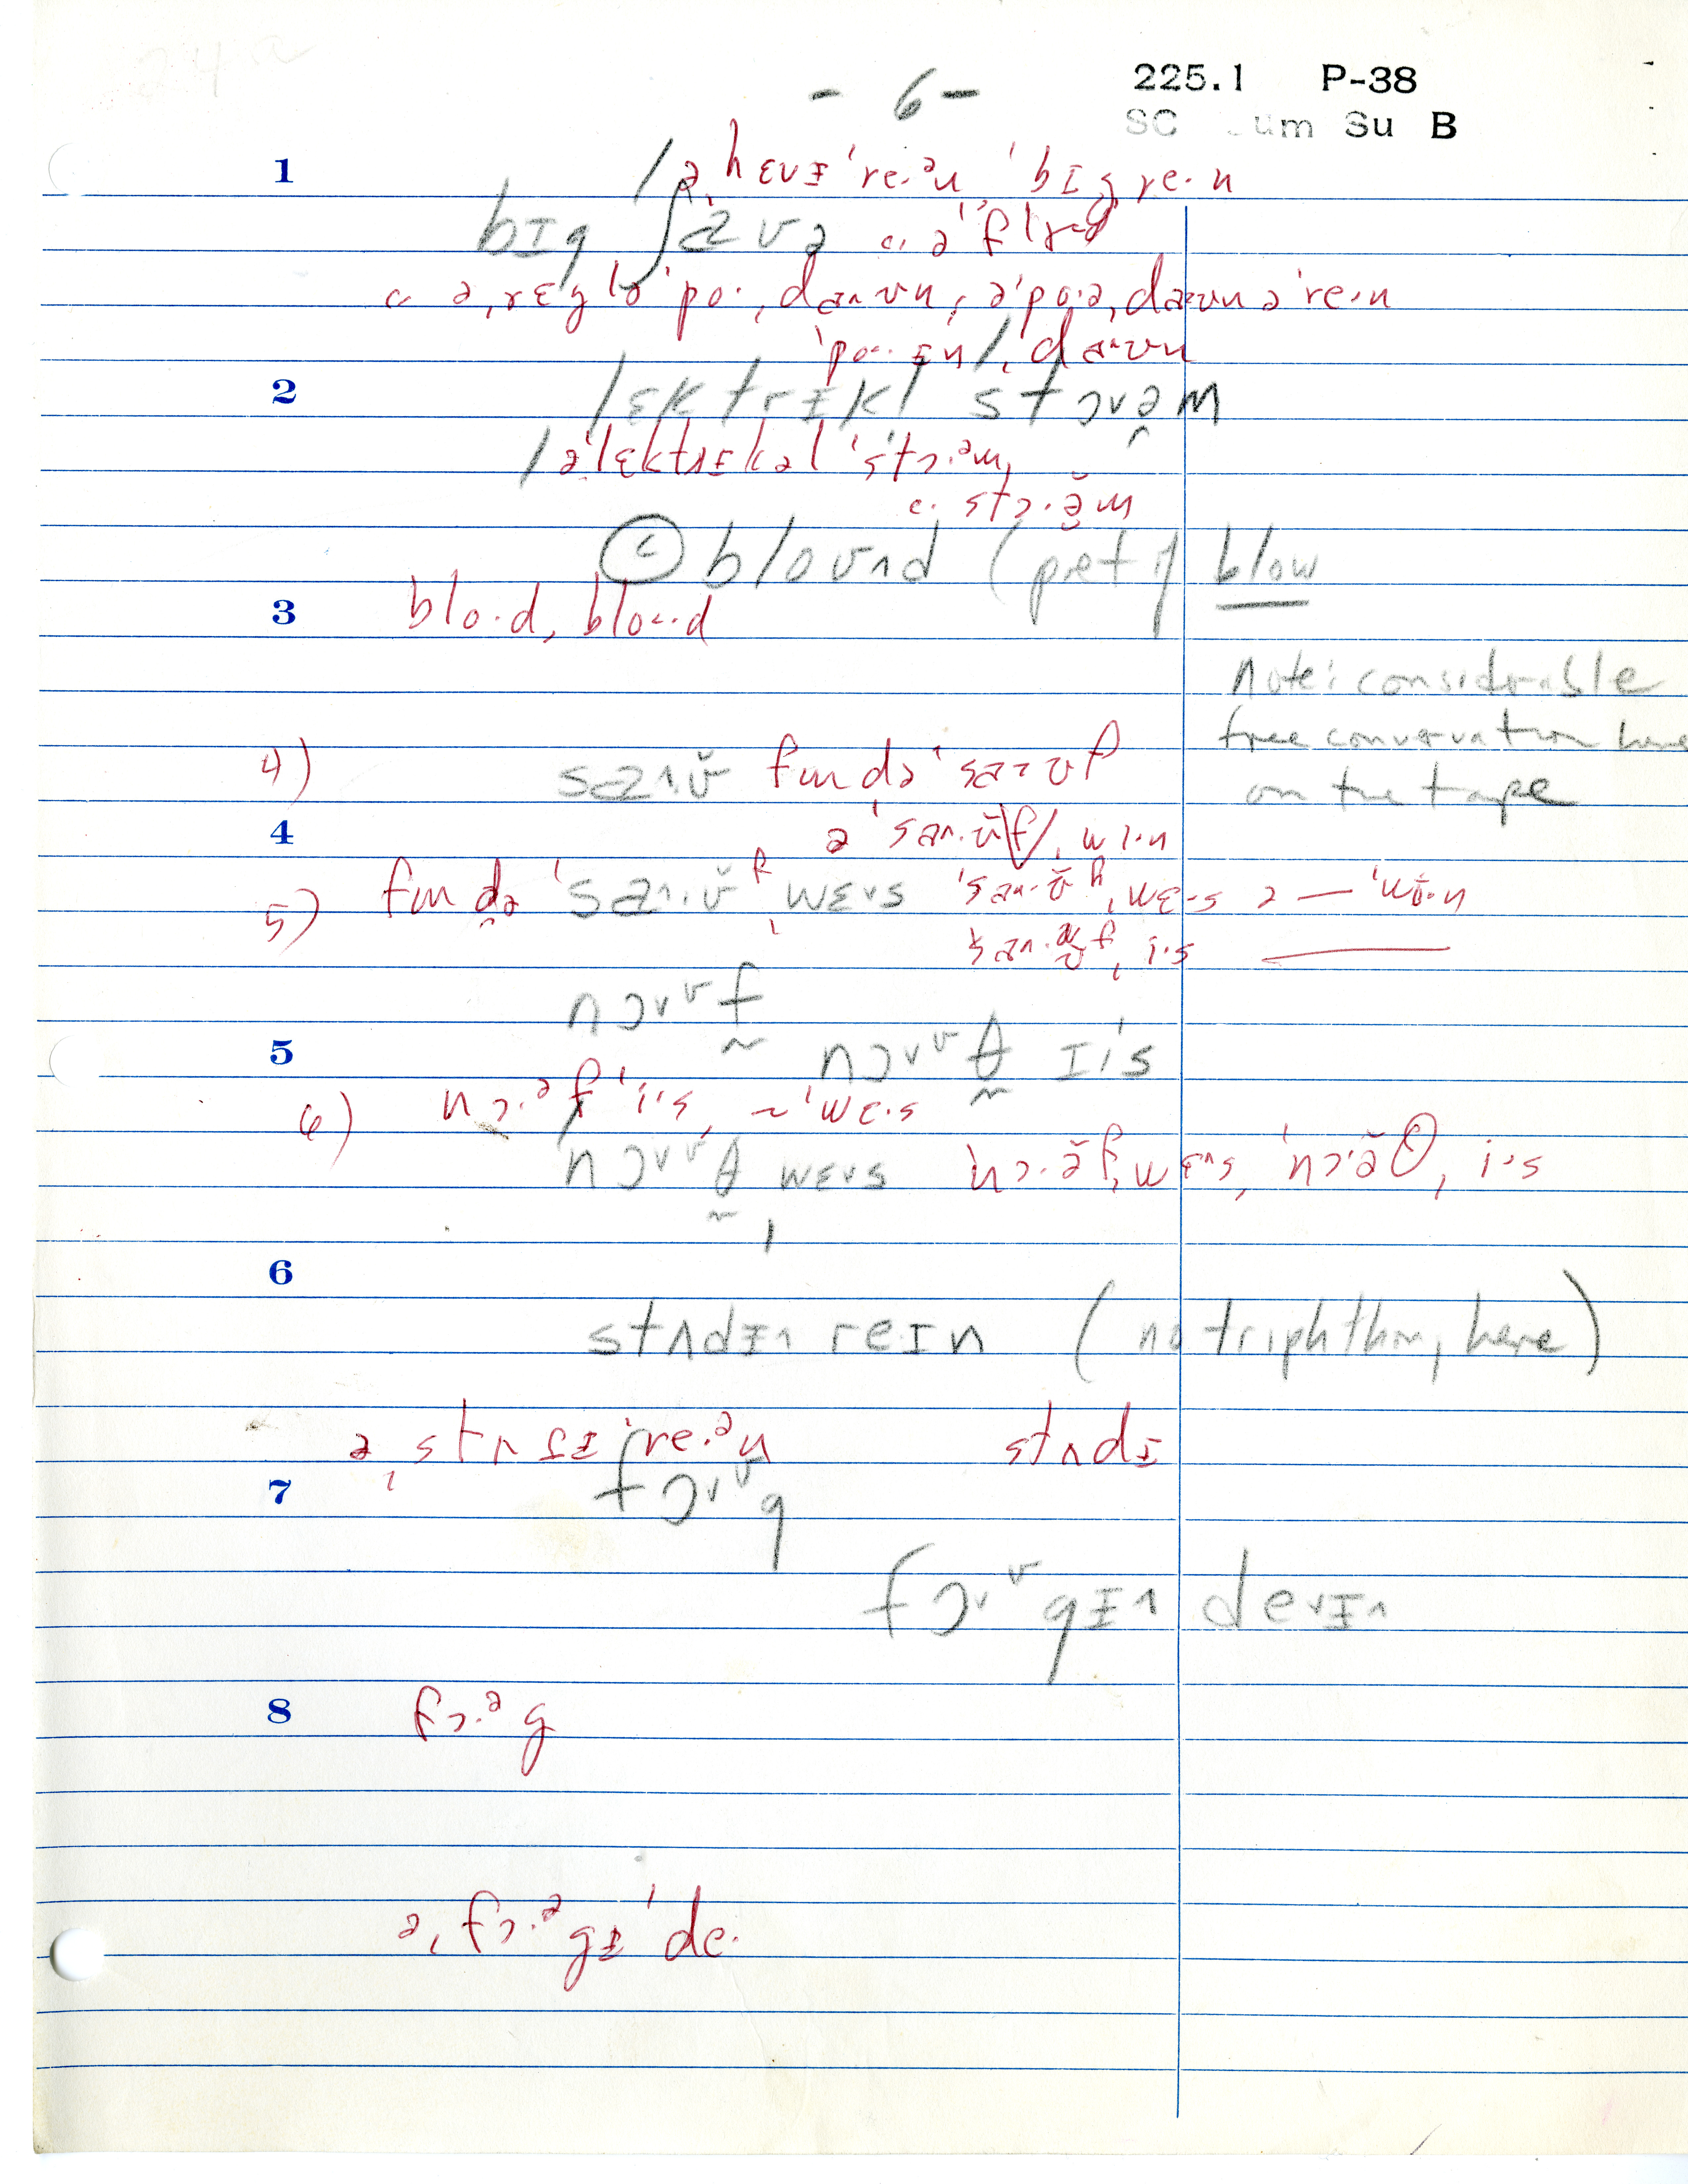 - 6 -
225.1 P-38
SC um Su B
1
ə ˌhɛvɪ ˈre.ᵊn ˈbɪg re.n
bɪg ʃaʊə c. ə ˈflʌd
c. ə ˌrɛglə ˈpo. ˌdaʌʊn, ə ˈpo.ə ˌdaʊn ə re.n
ˈpo.ɪn / ˌdaʌʊn
2
lɛktrɪkl stɔvəm
/ əˈlɛktrɪkəl ˈstɔ.ᵊm,
c. stɔ.ə̆m
ⓒ bloʊnd (pret of blow
3
blo.d, blo.d
Note: considerable
free conversation here
on the tape
4) saʌʊ̆ fm də ˈsaʊf
4
ə ˈsaʌ.ʊ̆f, wɪ.n
5) fm də ˈsaʌ.ʊ̆f ˌwɛvs ˈsaʌ.ʊ̆f ˌwɛ.s ə — ˈwɪ.n
saʌ.ʊ̆f ˌi.s
nɔvʊf
5
nɔvʊθ ɪˈs
6) nɔ.ᵊf ˈi.s, ~ ˈwɛ.s
nɔvʊθ wɛvs ˈnɔ.ə̆f ˌwɛʌs, ˈnɔ.ə̆θ ˌi.s
6
stʌdɪʌ reɪn (no triphthong here)
ə ˌstʌdɪ ˈre.ᵊn stʌdɪ
7
fɔvʊg
fɔvʊgɪʌ devɪʌ
8
fɔ.ᵊg
ə ˌfɔ.ᵊgɪ ˈde.